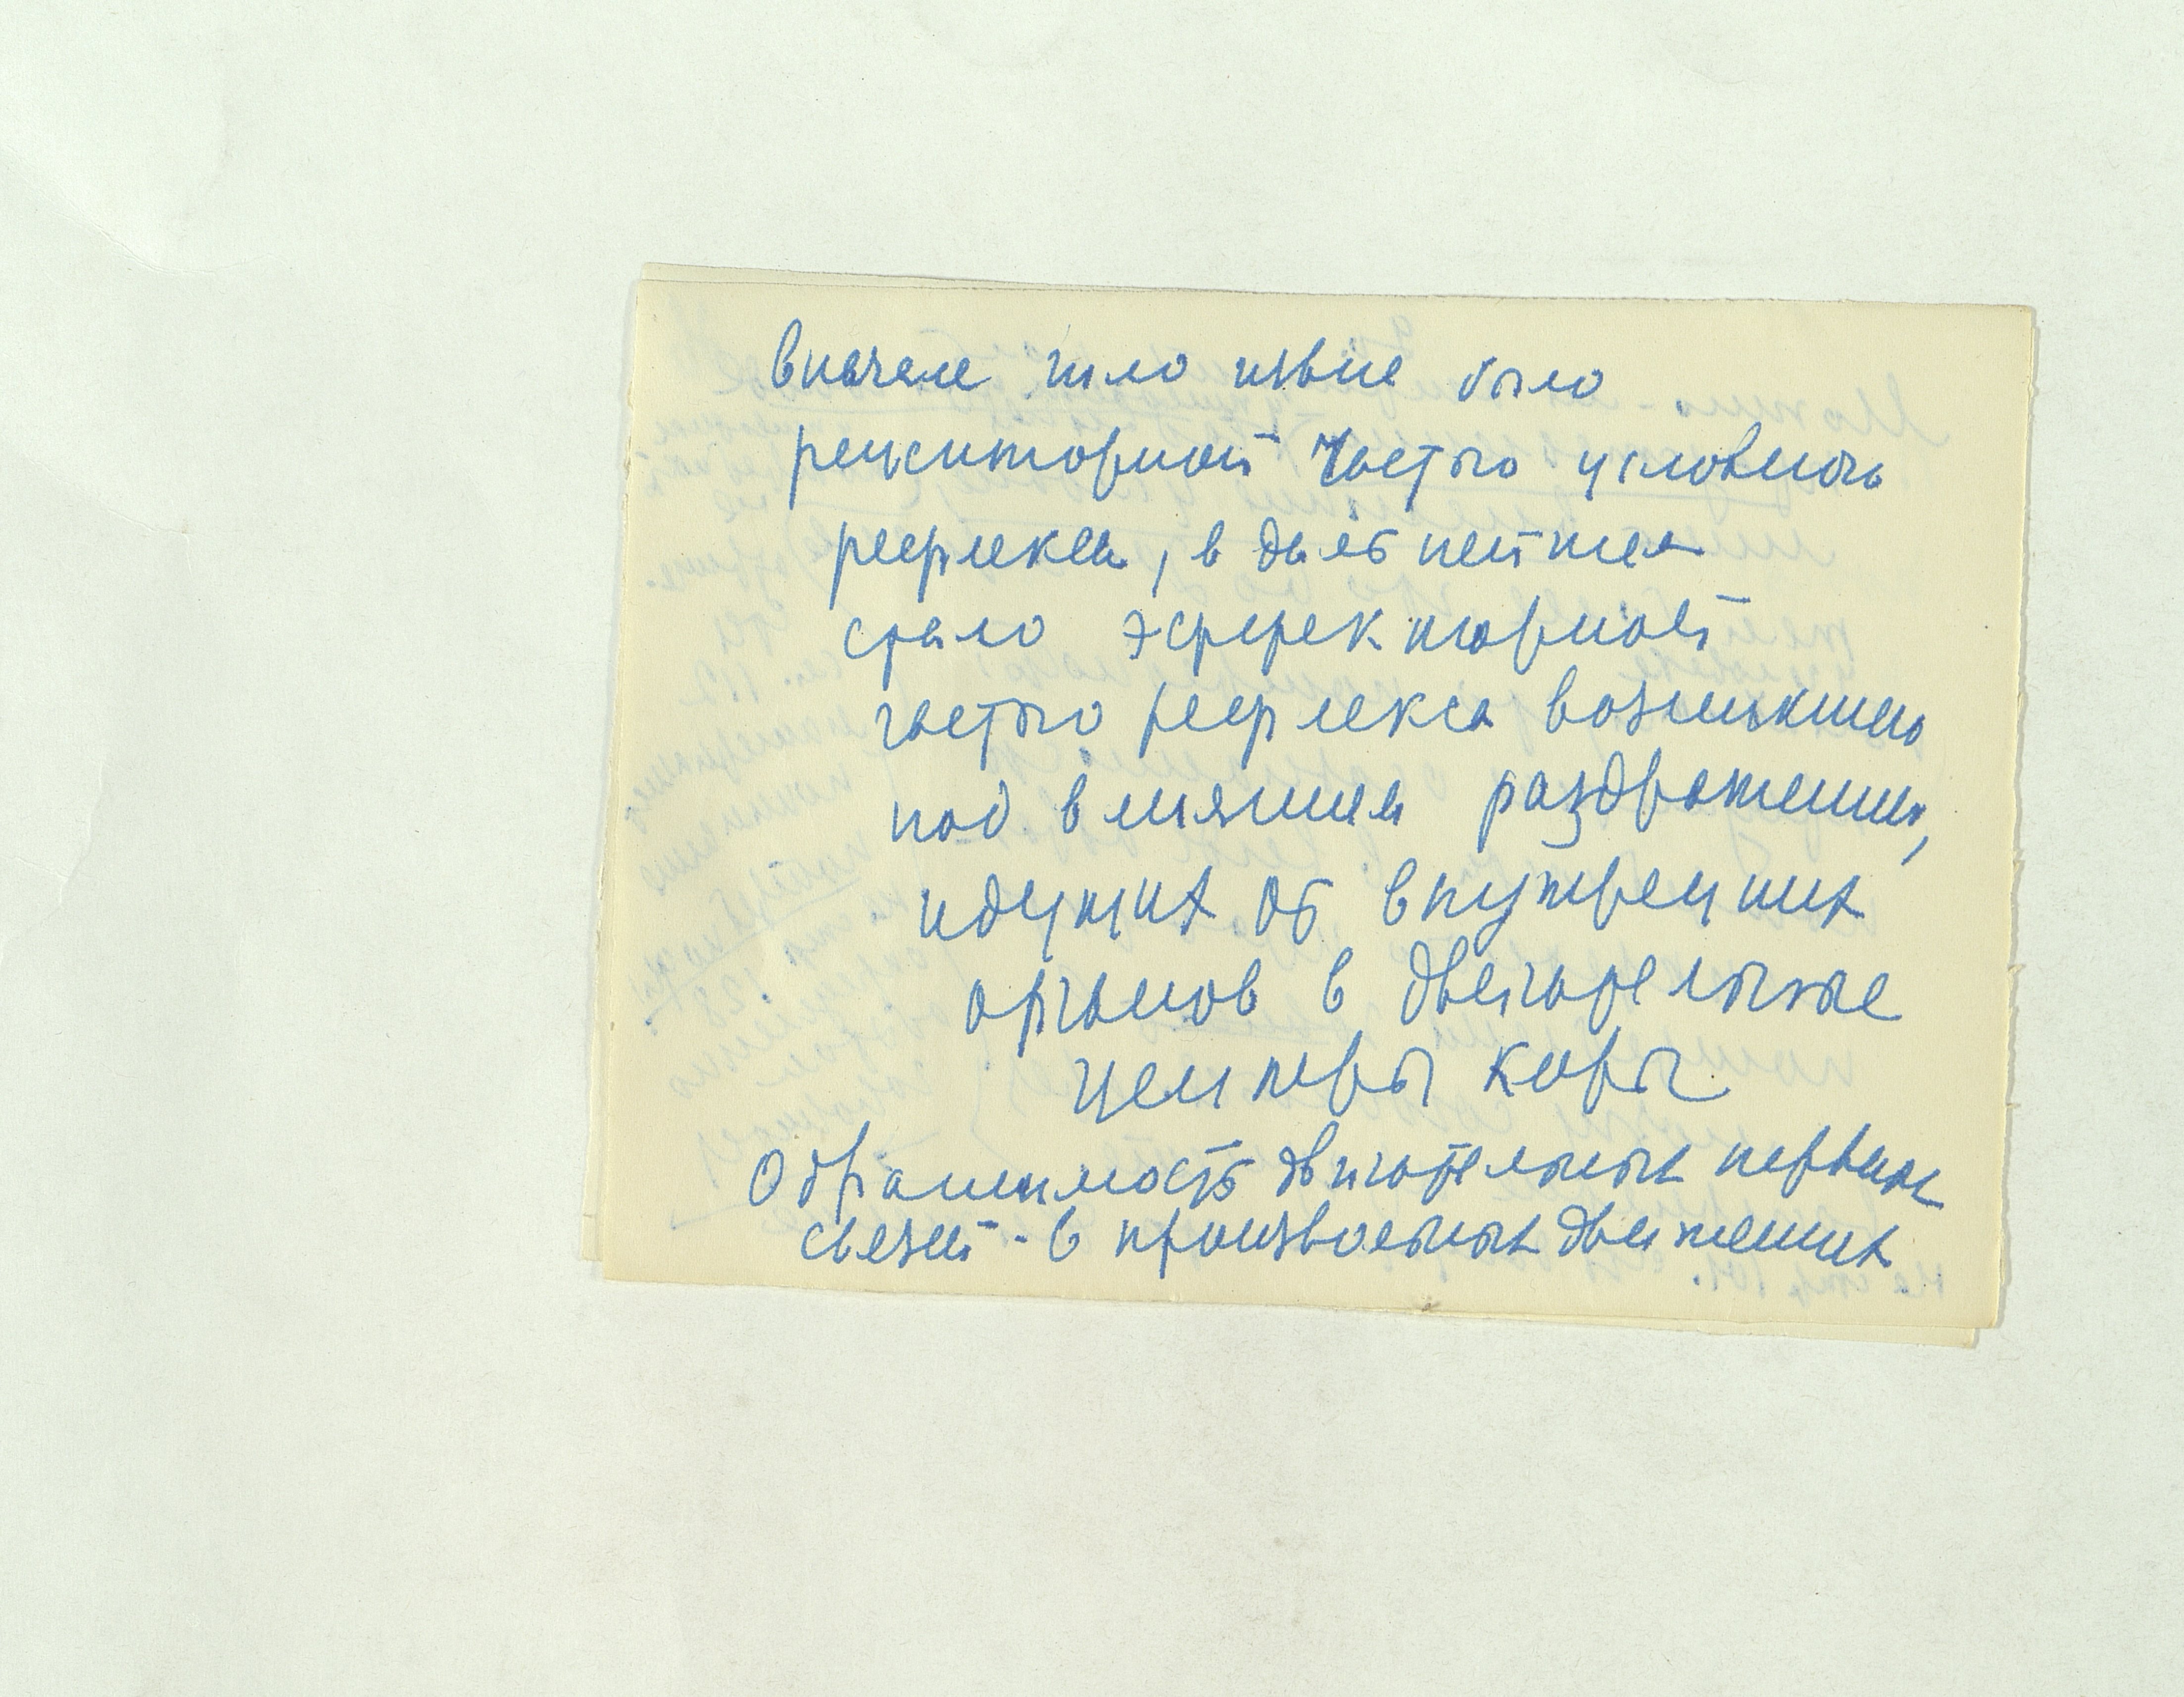 вначале шло извне было
рецепторной частью условного
рефлекса, в дальнейшем
стало эффекторной
частью рефлекса возникшего
под влиянием раздражений,
идущих от внутренних
органов в двигательные
центры коры
Обратимость двигательных нервных
связей - в произвольных движениях